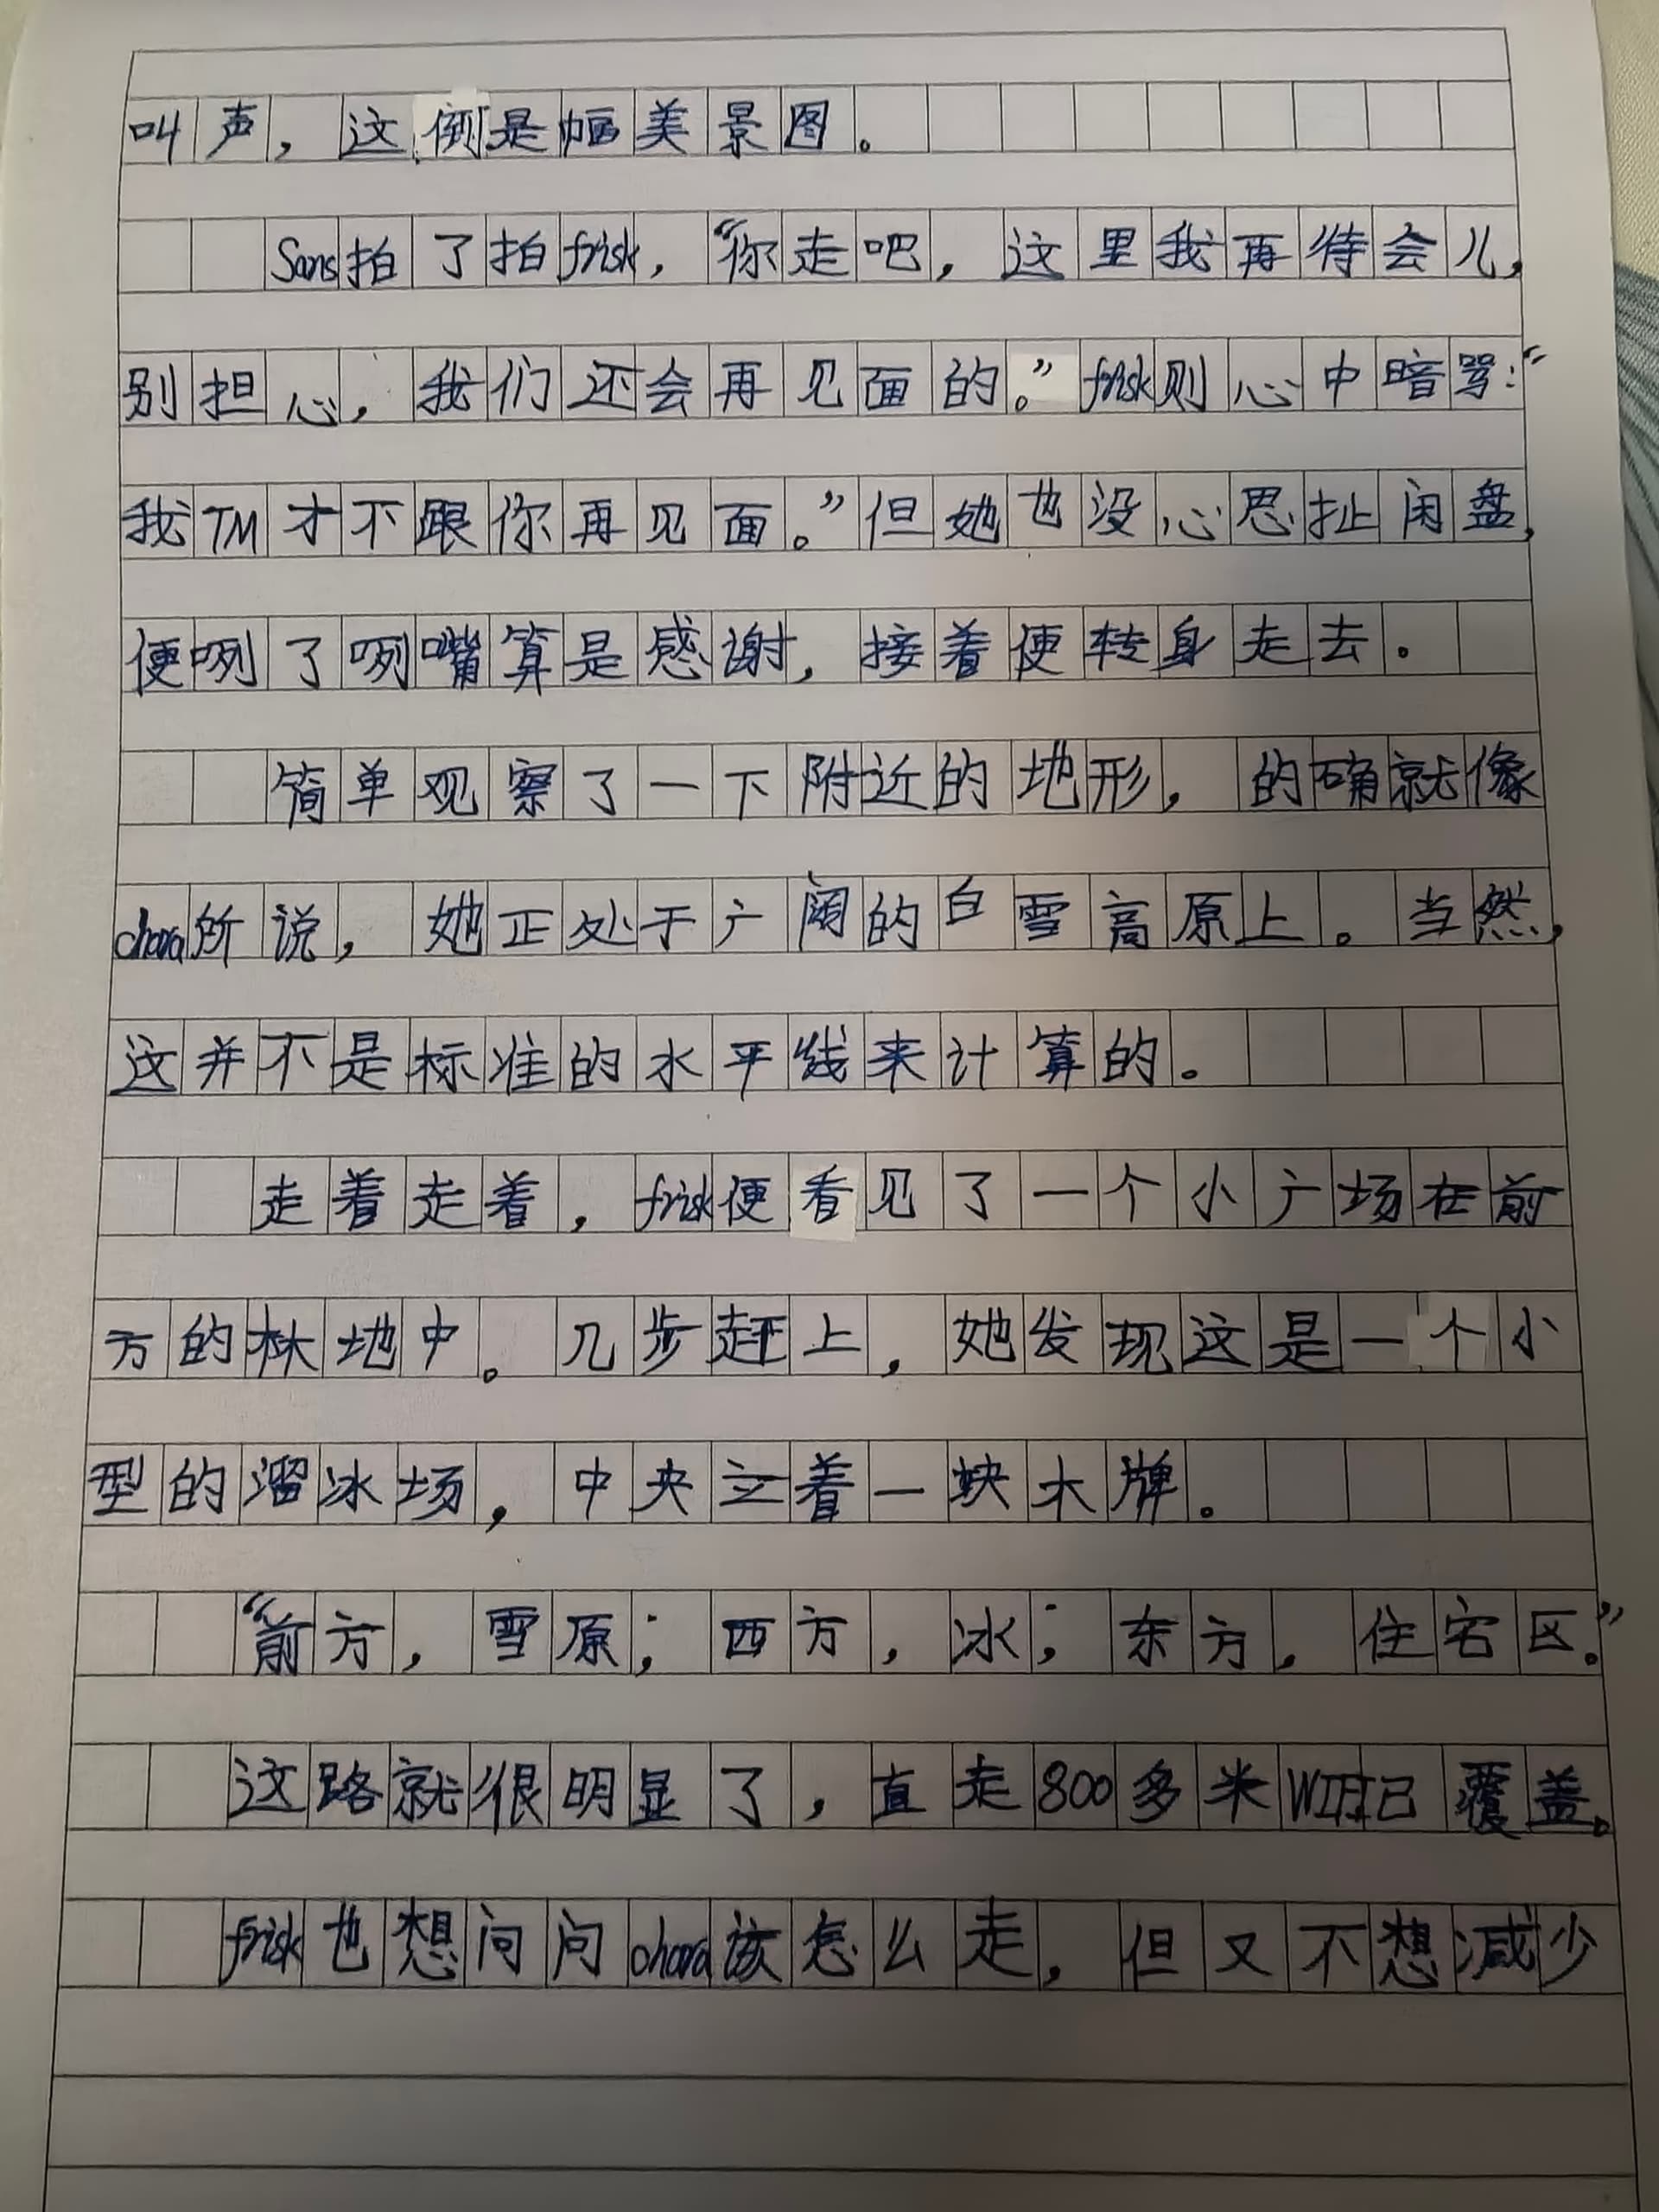 叫声，这倒是幅美景图。
Sans拍了拍frisk，“你走吧，这里我再待会儿，
别担心，我们还会再见面的。”frisk则心中暗骂：“
我TM才不跟你再见面。”但她也没心思扯闲盘，
便咧了咧嘴算是感谢，接着便转身走去。
简单观察了一下附近的地形，的确就像
chara所说，她正处于广阔的白雪高原上。当然，
这并不是标准的水平线来计算的。
走着走着，frisk便看见了一个小广场在前
方的林地中。几步赶上，她发现这是一个小
型的溜冰场，中央立着一块木牌。
“前方，雪原；西方，冰；东方，住宅区。”
这路就很明显了，直走800多米WIFI已覆盖。
frisk也想问问chara该怎么走，但又不想减少